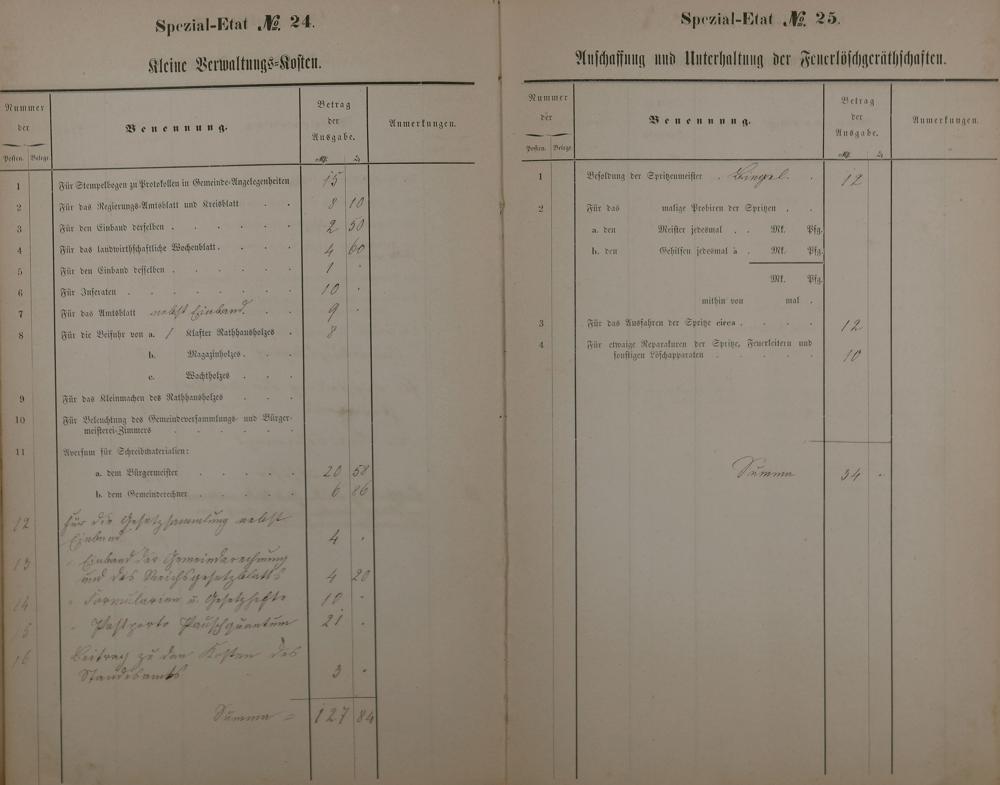 Spezial-Etat № 24.
Kleine Verwaltungs-Kosten.
Nummer der
Posten. Belege.
Benennung.
Betrag der Ausgabe.
Anmerkungen.
1 Für Stempelbogen zu Protokollen in Gemeinde-Angelegenheiten 15 .
2 Für das Regierungs-Amtsblatt und Kreisblatt . . 8 10
3 Für den Einband derselben . . . . . . 2 50
4 Für das landwirthschaftliche Wochenblatt . . . . 4 60
5 Für den Einband desselben . . . . . . 1 .
6 Für Inseraten . . . . . . . . 10 .
7 Für das Amtsblatt nebst Einband . . 9 .
8 Für die Beifuhr von a. 1 Klafter Rathhausholzes . 8
b. Magazinholzes . . .
c. Wachtholzes . . .
9 Für das Kleinmachen des Rathhausholzes . . .
10 Für Beleuchtung des Gemeindeversammlungs- und Bürger-
meisterei-Zimmers . . . . . .
11 Aversum für Schreibmaterialien:
a. dem Bürgermeister . . . . . 20 58
b. dem Gemeinderechner . . . . . 6 86
12 Für die Gesetzsammlung nebst
Einband 4 .
13 " Einband der Gemeinderechnung
und des Reichsgesetzblatts 4 20
14 " Formularien u. Gesetzhefte 10 .
15 " Postporto Pauschquantum 21 .
16 Beitrag zu den Kosten des
Standesamts 3 .
Summa = 127 84
Spezial-Etat № 25.
Anschaffung und Unterhaltung der Feuerlöschgeräthschaften.
Nummer der
Posten. Belege.
Benennung.
Betrag der Ausgabe.
Anmerkungen.
1 Besoldung der Spritzenmeister . Bingel . . 12
2 Für das malige Probiren der Spritzen . .
a. den Meister jedesmal . . Mk. Pfg.
b. den Gehilfen jedesmal à . Mk. Pfg.
Mk. Pfg.
mithin von mal .
3 Für das Ausfahren der Spritze circa . . . . 12
4 Für etwaige Reparaturen der Spritze, Feuerleitern und
sonstigen Löschapparaten . . . . . 10
Summa 34 .